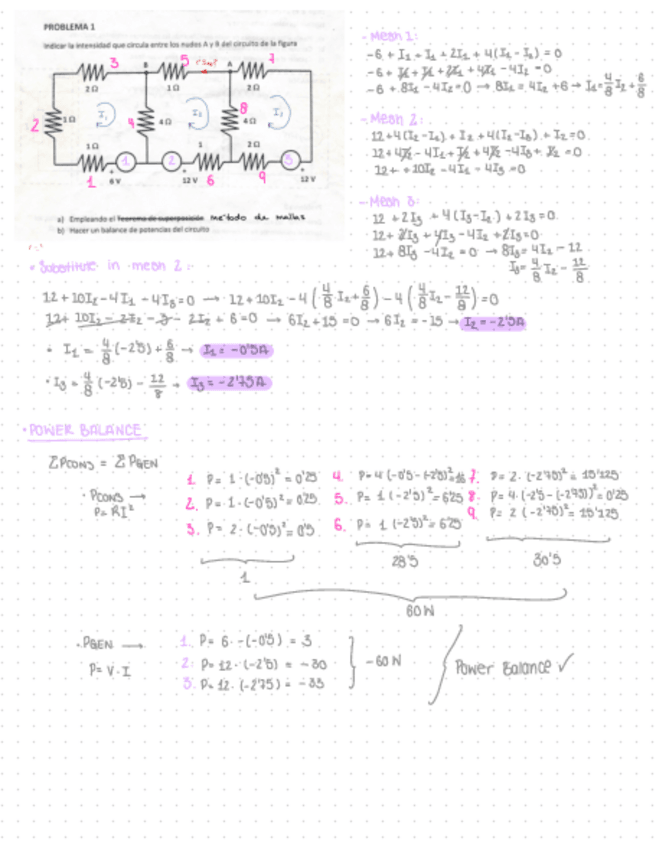 PROBLEMA 1
Indicar la intensidad que circula entre los nudos A y B del circuito de la figura
3
B
5
A
7
2 Ω
1 Ω
2 Ω
2
1 Ω
I₁
4
4 Ω
I₂
8
4 Ω
I₃
1 Ω
1
2 Ω
1
2
3
1
6 V
12 V
6
9
12 V
a) Empleando el Teorema de superposición método de mallas
b) Hacer un balance de potencias del circuito
- Mesh 1:
-6 + I₁ + I₁ + 2I₁ + 4(I₁ - I₂) = 0
-6 + I₁ + I₁ + 2I₁ + 4I₁ - 4I₂ = 0
-6 + 8I₁ - 4I₂ = 0 → 8I₁ = 4I₂ + 6 → I₁ = 4/8 I₂ + 6/8
- Mesh 2:
12 + 4(I₂ - I₁) + I₂ + 4(I₂ - I₃) + I₂ = 0
12 + 4I₂ - 4I₁ + I₂ + 4I₂ - 4I₃ + I₂ = 0
12 + + 10I₂ - 4I₁ - 4I₃ = 0
- Mesh 3:
12 + 2I₃ + 4(I₃ - I₂) + 2I₃ = 0
12 + 2I₃ + 4I₃ - 4I₂ + 2I₃ = 0
12 + 8I₃ - 4I₂ = 0 → 8I₃ = 4I₂ - 12
I₃ = 4/8 I₂ - 12/8
• Substitute in mesh 2:
12 + 10I₂ - 4I₁ - 4I₃ = 0 → 12 + 10I₂ - 4(4/8 I₂ + 6/8) - 4(4/8 I₂ - 12/8) = 0
12 + 10I₂ - 2I₂ - 3 - 2I₂ + 6 = 0 → 6I₂ + 15 = 0 → 6I₂ = -15 → I₂ = -2'5A
• I₁ = 4/8 (-2'5) + 6/8 → I₁ = -0'5A
• I₃ = 4/8 (-2'5) - 12/8 → I₃ = -2'75A
• POWER BALANCE
ΣPCONS = ΣPGEN
• PCONS →
P = RI²
1. P = 1 · (-0'5)² = 0'25
2. P = 1 · (-0'5)² = 0.25
3. P = 2 · (-0'5)² = 0'5
1
4. P = 4 (-0'5 - (-2'5))² = 16
5. P = 1 (-2'5)² = 6'25
6. P = 1 (-2'5)² = 6'25
28'5
7. P = 2 · (-2'75)² = 15'125
8. P = 4 · (-2'5 - (-2'75))² = 0'25
9. P = 2 (-2'75)² = 15'125
30'5
60 W
• PGEN →
P = V · I
1. P = 6 · -(-0'5) = 3
2. P = 12 · (-2'5) = -30
3. P = 12 · (-2'75) = -33
-60 W
Power Balance ✓